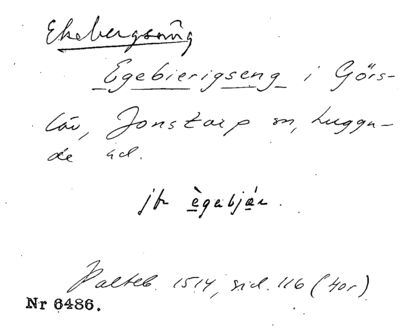 Ekebergsäng
Egebierigseng i Görs-
löv, Jonstorp sn, Luggu-
de hd.
jfr ègabjár.
Palteb. 1514, sid. 116 (hor)
Nr 6486.